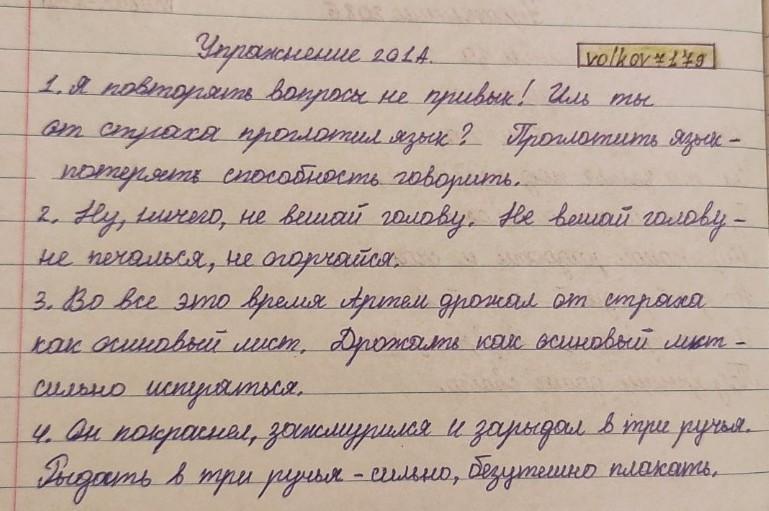 Упражнение 201А.
volkov7179
1. Я повторять вопросы не привык! Иль ты
от страха проглотил язык? Проглотить язык -
потерять способность говорить.
2. Ну, ничего, не вешай голову. Не вешай голову -
не печалься, не огорчайся.
3. Во все это время Артем дрожал от страха
как осиновый лист. Дрожать как осиновый лист -
сильно испугаться.
4. Он покраснел, зажмурился и зарыдал в три ручья.
Рыдать в три ручья - сильно, безутешно плакать.